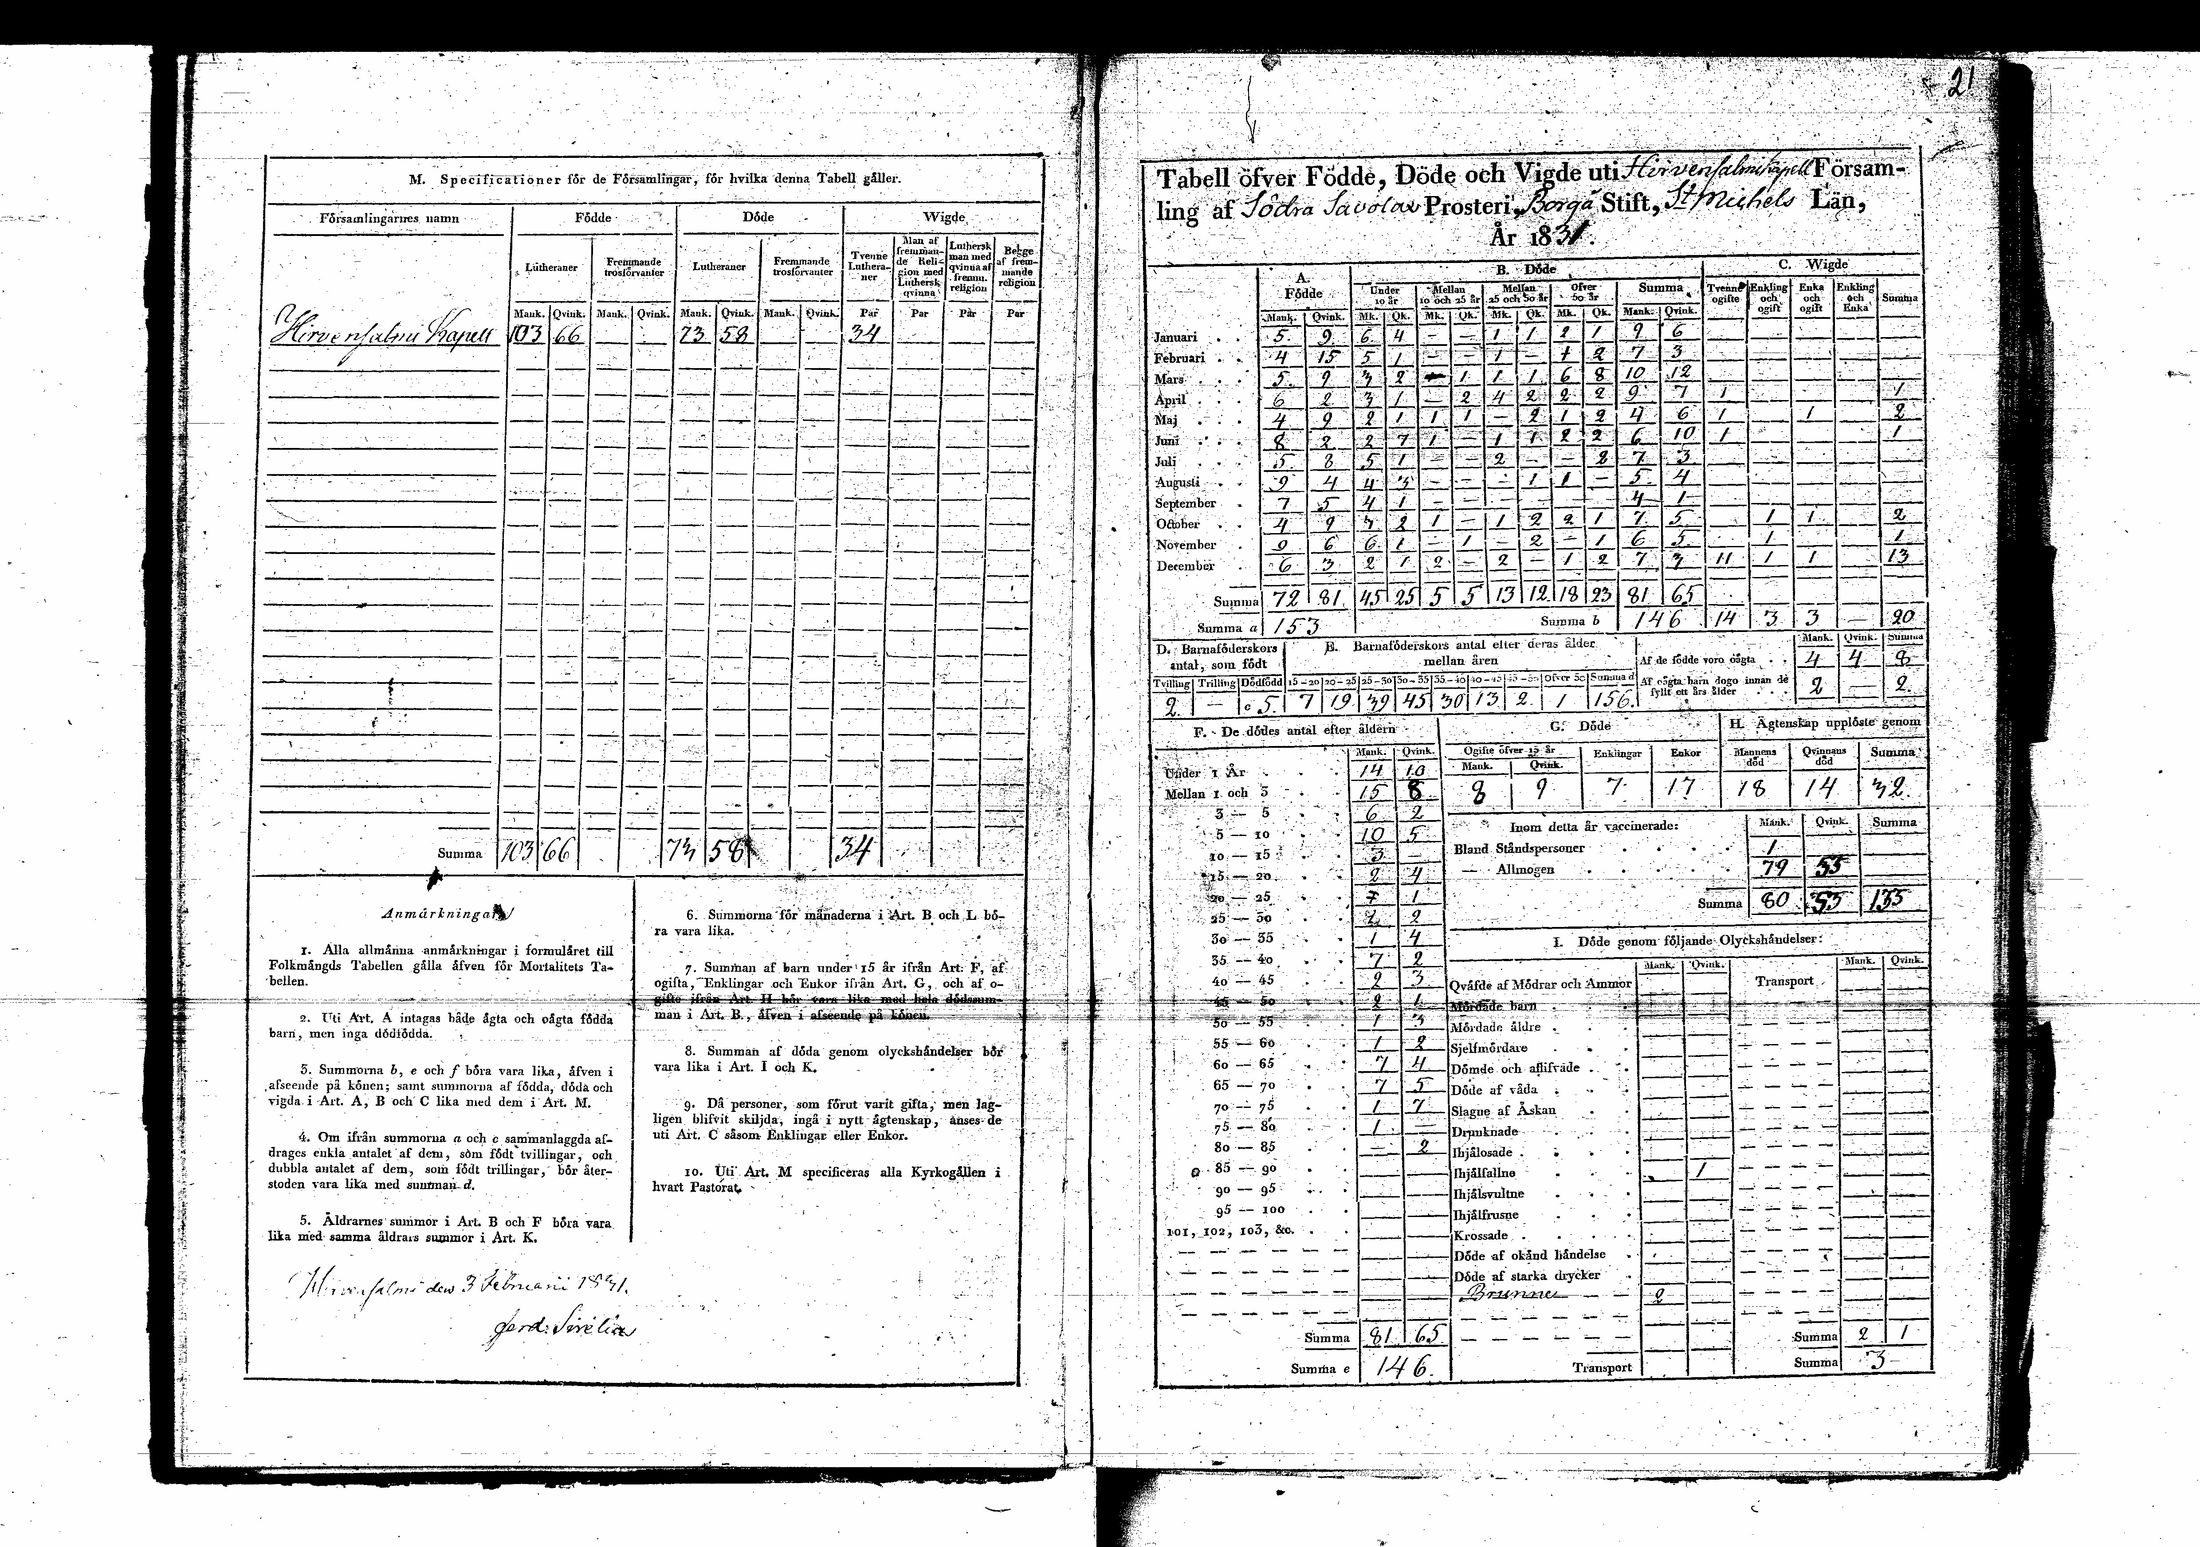 M. Specificationer för de Församlingar, för hvilka denna Tabell gäller.
Församlingarnes namn | Födde | Döde | Wigde
Lutheraner | Fremmande trosförvanter | Lutheraner | Fremmande trosförvanter | Tvenne Lutheraner | Man af fremmande Religion med Luthersk qvinna | Luthersk man med qvinna af fremm. religion | Begge af fremmande religion
Mank. | Qvink. | Mank. | Qvink. | Mank. | Qvink. | Mank. | Qvink. | Par | Par | Par | Par
Hirvensalmi Kapell | 103 | 66 | 73 | 58 | 34
Summa | 103 | 66 | 73 | 58 | 34
Anmärkningar
1. Alla allmänna anmärkningar i formuläret till
Folkmängds Tabellen gälla äfven för Mortalitets Ta-
bellen.
2. Uti Art. A intagas både ägta och oägta födda
barn, men inga dödfödda.
3. Summorna b, e och f böra vara lika, äfven i
afseende på könen; samt summorna af födda, döda och
vigda i Art. A, B och C lika med dem i Art. M.
4. Om ifrån summorna a och c sammanlaggda af-
drages enkla antalet af dem, som födt tvillingar, och
dubbla antalet af dem, som födt trillingar, bör åter-
stoden vara lika med summan d.
5. Äldrarnes summor i Art. B och F böra vara
lika med samma äldrars summor i Art. K.
6. Summorna för månaderna i Art. B och L bö-
ra vara lika.
7. Summan af barn under 15 år ifrån Art. F, af
ogifta, Enklingar och Enkor ifrån Art. G, och af o-
gifte ifrån Art. H bör vara lika med hela dödssum-
man i Art. B., äfven i afseende på könen.
8. Summan af döda genom olyckshändelser bör
vara lika i Art. I och K.
9. Då personer, som förut varit gifta, men lag-
ligen blifvit skiljda, ingå i nytt ägtenskap, anses de
uti Art. C såsom Enklingar eller Enkor.
10. Uti Art. M specificeras alla Kyrkogällen i
hvart Pastorat.
Hirvensalmi den 3 Februarii 1831.
21
Tabell öfver Födde, Döde och Vigde uti Hirvensalmi Kapell Församling
af Södra Savolax Prosteri, Borgå Stift, St Michels Län,
År 1831.
A. Födde | B. Döde | C. Wigde
Under 10 år | Mellan 10 och 25 år | Mellan 25 och 50 år | Öfver 50 år | Summa | Tvenne ogifte | Enkling och ogift | Enka och ogift | Enkling och Enka | Summa
Mank. | Qvink. | Mk. | Qk. | Mk. | Qk. | Mk. | Qk. | Mk. | Qk. | Mank. | Qvink.
Januari | 5 | 9 | 6 | 4 | — | — | 1 | 1 | 2 | 1 | 9 | 6
Februari | 4 | 15 | 5 | 1 | — | — | 1 | — | 1 | 2 | 7 | 3
Mars | 5 | 9 | 3 | 2 | — | 1 | 1 | 1 | 6 | 8 | 10 | 12
April | 6 | 2 | 3 | 1 | — | 2 | 4 | 2 | 2 | 2 | 9 | 7 | 1 | 1
Maj | 4 | 9 | 2 | 1 | 1 | 1 | — | 2 | 1 | 2 | 4 | 6 | 1 | 1 | 2
Juni | 8 | 2 | 2 | 7 | 1 | — | 1 | 1 | 2 | 2 | 6 | 10 | 1 | 1
Juli | 5 | 8 | 5 | 1 | — | — | 2 | — | — | 2 | 7 | 3
Augusti | 9 | 4 | 4 | 3 | — | — | — | 1 | 1 | — | 5 | 4
September | 7 | 5 | 4 | 1 | — | — | — | — | — | — | 4 | 1
October | 4 | 9 | 3 | 2 | 1 | — | 1 | 2 | 2 | 1 | 7 | 5 | 1 | 1 | 2
November | 9 | 6 | 6 | 1 | — | 1 | — | 2 | — | 1 | 6 | 5 | 1 | 1
December | 6 | 3 | 2 | 1 | 2 | — | 2 | — | 1 | 2 | 7 | 3 | 11 | 1 | 1 | 13
Summa | 72 | 81 | 45 | 25 | 5 | 5 | 13 | 12 | 18 | 23 | 81 | 65
Summa a | 153 | Summa b | 146 | 14 | 3 | 3 | — | 20
D. Barnaföderskors antal, som födt | E. Barnaföderskors antal efter deras ålder mellan åren | Mank. | Qvink. | Summa
Tvilling | Trilling | Dödfödd | 15–20 | 20–25 | 25–30 | 30–35 | 35–40 | 40–45 | 45–50 | Öfver 50 | Summa d
2 | — | c 5 | 7 | 19 | 39 | 45 | 30 | 13 | 2 | 1 | 156
Af de födde voro oägta | 4 | 4 | 8
Af oägta barn dogo innan de fyllt ett års ålder | 2 | — | 2
F. De dödes antal efter åldern
Mank. | Qvink.
Under 1 År | 14 | 10
Mellan 1 och 3 | 15 | 8
3 — 5 | 6 | 2
5 — 10 | 10 | 5
10 — 15 | 3 | —
15 — 20 | 2 | 4
20 — 25 | 1
25 — 30 | 2
30 — 35 | 1 | 4
35 — 40 | 7 | 2
40 — 45 | 2 | 3
45 — 50 | 2 | 1
50 — 55 | 1 | 3
55 — 60 | 1 | 2
60 — 65 | 7 | 4
65 — 70 | 7 | 5
70 — 75 | 1 | 7
75 — 80 | 1 | —
80 — 85 | — | 2
85 — 90
90 — 95
95 — 100
101, 102, 103, &c.
Summa | 81 | 65
Summa e | 146.
G. Döde
Ogifte öfver 15 år | Enklingar | Enkor
Mank. | Qvink.
8 | 9 | 7 | 17
H. Ägtenskap upplöste genom
Mannens död | Qvinnans död | Summa
18 | 14 | 32
Inom detta år vaccinerade: | Mank. | Qvink. | Summa
Bland Ståndspersoner | 1
— Allmogen | 79 | 55
Summa | 80 | 55 | 135
I. Döde genom följande Olyckshändelser:
Mank. | Qvink. | Transport | Mank. | Qvink.
Qväfde af Mödrar och Ammor
Mördade barn
Mördade äldre
Sjelfmördare
Dömde och aflifvade
Döde af våda
Slagne af Åskan
Drunknade
Ihjälosade
Ihjälfallne | 1
Ihjälsvultne
Ihjälfrusne
Krossade
Döde af okänd händelse
Döde af starka drycker
Brunne | 2
Summa | 2 | 1
Transport | Summa | 3